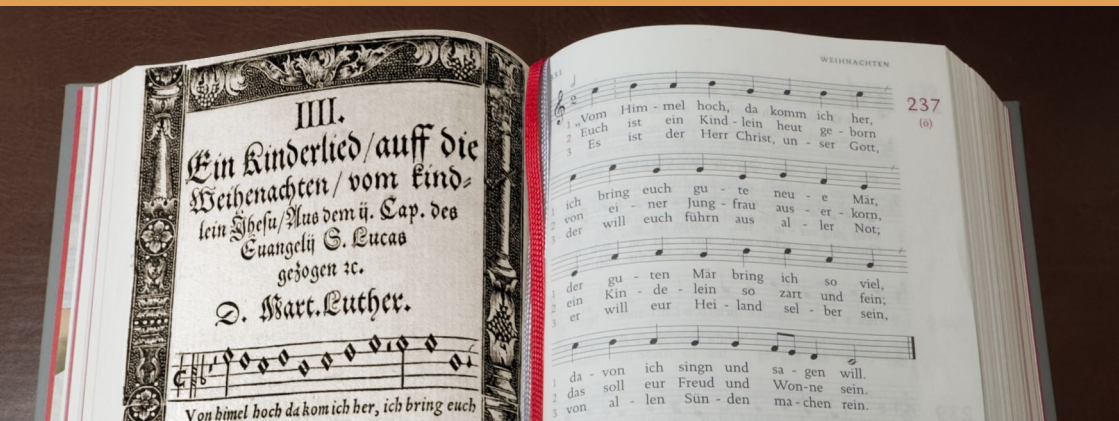 IIII.
Ein Kinderlied/auff die
Weihenachten/vom kind⸗
lein Jhesu/Aus dem ij. Cap. des
Euangelij S. Lucas
gezogen ꝛc.
D. Mart.Luther.
Von himel hoch da kom ich her, ich bring euch
WEIHNACHTEN
237
(ö)
1 „Vom Him - mel hoch, da komm ich her,
2 Euch ist ein Kind - lein heut ge - born
3 Es ist der Herr Christ, un - ser Gott,
1 ich bring euch gu - te neu - e Mär,
2 von ei - ner Jung - frau aus - er - korn,
3 der will euch führn aus al - ler Not;
1 der gu - ten Mär bring ich so viel,
2 ein Kin - de - lein so zart und fein;
3 er will eur Hei - land sel - ber sein,
1 da - von ich singn und sa - gen will.
2 das soll eur Freud und Won-ne sein.
3 von al - len Sün - den ma - chen rein.